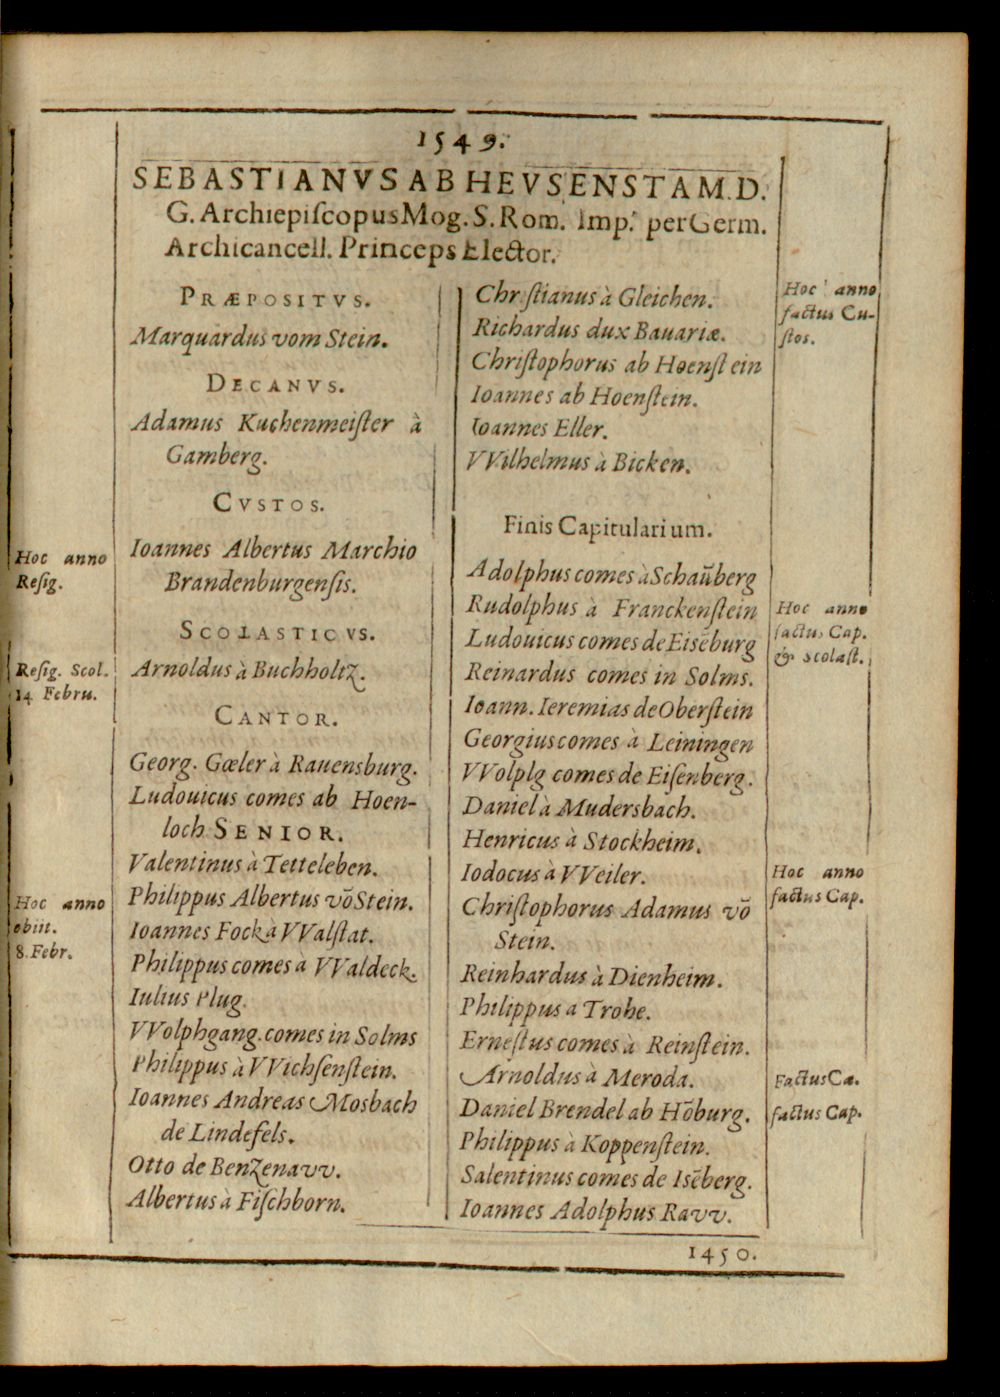 1549.
SEBASTIANVS AB HEVSENSTAM. D.
G. Archiepiſcopus Mog. S. Rom. Imp. per Germ.
Archicancell. Princeps Elector.
PRÆPOSITVS.
Marquardus vom Stein.
DECANVS.
Adamus Kuchenmeiſter à
Gamberg.
CVSTOS.
Hoc anno
Reſig.
Ioannes Albertus Marchio
Brandenburgenſis.
SCOLASTICVS.
Reſig. Scol.
14 Febru.
Arnoldus à Buchholtz.
CANTOR.
Georg. Gœler à Rauensburg.
Ludouicus comes ab Hoen-
loch SENIOR.
Valentinus à Tetteleben.
Hoc anno
obiit.
8. Febr.
Philippus Albertus vō Stein.
Ioannes Fock à VValſtat.
Philippus comes à VValdeck.
Iulius Plug.
VVolphgang. comes in Solms
Philippus à VVichſenſtein.
Ioannes Andreas Mosbach
de Lindefels.
Otto de Benzenavv.
Albertus à Fiſchborn.
Chriſtianus à Gleichen.
Hoc anno
factus Cu-
ſtos.
Richardus dux Bauariæ.
Chriſtophorus ab Hoenſtein
Ioannes ab Hoenſtein.
Ioannes Eller.
VVilhelmus à Bicken.
Finis Capitularium.
Adolphus comes à Schaūberg
Rudolphus à Franckenſtein
Hoc anno
factus Cap.
& scolaſt.
Ludouicus comes de Eisēburg
Reinardus comes in Solms.
Ioann. Ieremias de Oberſtein
Georgius comes à Leiningen
VVolplg comes de Eiſenberg.
Daniel à Mudersbach.
Henricus à Stockheim.
Iodocus à VVeiler.
Hoc anno
factus Cap.
Chriſtophorus Adamus vō
Stein.
Reinhardus à Dienheim.
Philippus a Trohe.
Erneſtus comes à Reinſtein.
Arnoldus à Meroda.
Factus Ca.
Daniel Brendel ab Hōburg.
factus Cap.
Philippus à Koppenſtein.
Salentinus comes de Isēberg.
Ioannes Adolphus Ravv.
1450.